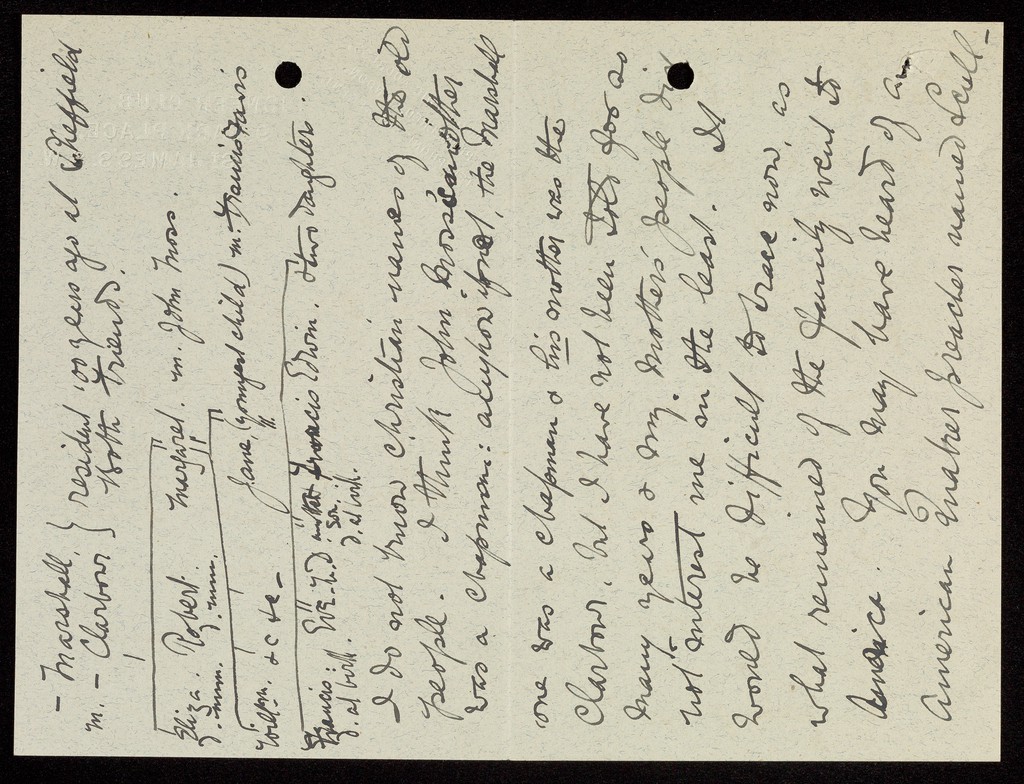 - Marshall } resident 100 years ago at Sheffield
m. - Clarbour } Both Friends.
Eliza. Robert. Margaret. m. John Moss.
d. unm. d. unm.
Willm. &c &c - Jane, (youngest child) m. Francis Davis
Francis: Edwin. & two daughters.
d. at birth. son.
d. at birth.
I do not know Christian names of the old
people. I think John Moss' mother
was a Chapman: anyhow if not, the Marshall
one was a Chapman & his mother was the
Clarbour. But I have not been told for so
many years & my mothers' people did
not interest me in the least. It
would be difficult to trace now, as
what remained of the family went to
America. You may have heard of an
American Quaker preacher named Scull-